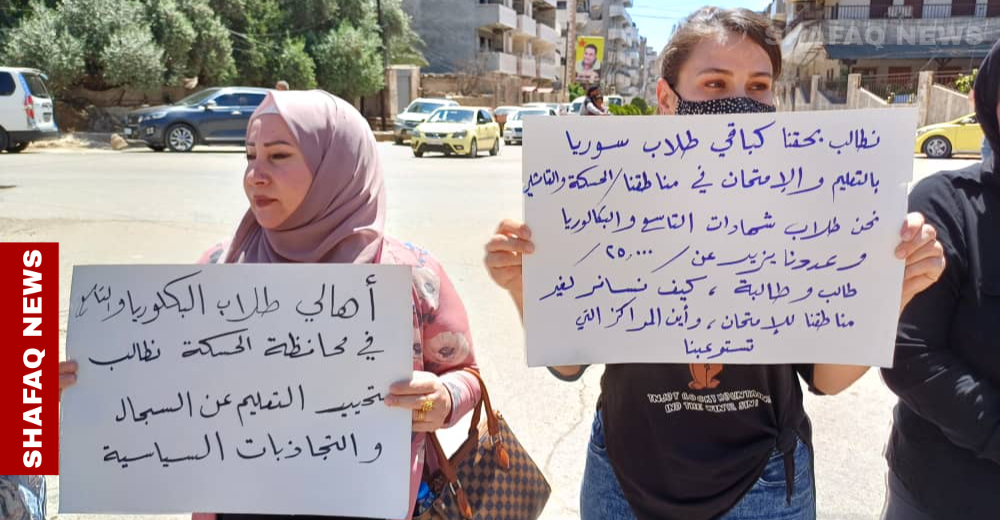 SHAFAQ NEWS
SHAFAQ NEWS
أهالي طلاب البكلوريا والتاسع
في محافظة الحسكة نطالب
بتحييد التعليم عن السجال
والتجاذبات السياسية
نطالب بحقنا كباقي طلاب سوريا
بالتعليم والإمتحان في مناطقنا/الحسكة والقامشلي
نحن طلاب شهادات التاسع والبكالوريا
وعددنا يزيد عن /٢٥,٠٠٠/
طالب وطالبة، كيف نسافر لغير
مناطقنا للإمتحان، وأين المراكز التي
تستوعبنا